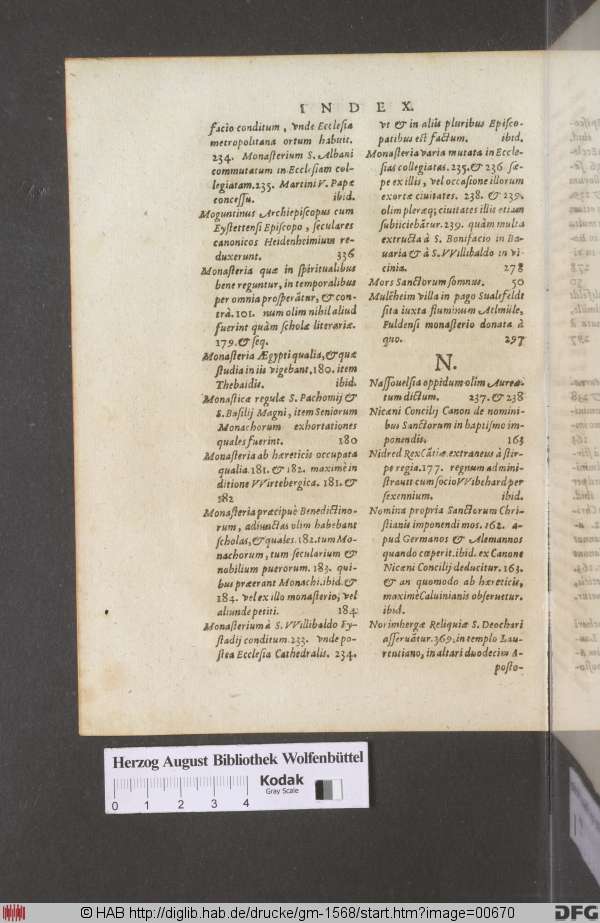 INDEX.
facio conditum, vnde Ecclesia
metropolitana ortum habuit.
234. Monasterium S. Albani
commutatum in Ecclesiam col-
legiatam. 235. Martini V. Papæ
concessu. ibid.
Moguntinus Archiepiscopus cum
Eystettensi Episcopo, seculares
canonicos Heidenheimium re-
duxerunt. 336
Monasteria quæ in spiritualibus
bene reguntur, in temporalibus
per omnia prosperātur, & con-
trà. 101. num olim nihil aliud
fuerint quàm scholæ literariæ.
179. & seq.
Monasteria Ægypti qualia, & quæ
studia in iis vigebant. 180. item
Thebaidis. ibid.
Monasticæ regulæ S. Pachomij &
S. Basilij Magni, item Seniorum
Monachorum exhortationes
quales fuerint. 180
Monasteria ab hæreticis occupata
qualia. 181. & 182. maximè in
ditione VVirtebergica. 181. &
182
Monasteria præcipuè Benedictino-
rum, adiunctas olim habebant
scholas, & quales. 182. tum Mo-
nachorum, tum secularium &
nobilium puerorum. 183. qui-
bus præerant Monachi. ibid. &
184. vel ex illo monasterio, vel
aliunde petiti. 184
Monasterium à S. VVillibaldo Ey-
stadij conditum. 233. vnde po-
stea Ecclesia Cathedralis. 234.
vt & in aliis pluribus Episco-
patibus est factum. ibid.
Monasteria varia mutata in Eccle-
sias collegiatas. 235. & 236. sæ-
pe ex illis, vel occasione illorum
exortæ ciuitates. 238. & 239.
olim pleræq; ciuitates illis etiam
subiiciebātur. 239. quàm multa
extructa à S. Bonifacio in Ba-
uaria & à S. VVillibaldo in vi-
cinia. 278
Mors Sanctorum somnus. 50
Mulcheim villa in pago Sualefeldt
sita iuxta fluuium Aelmüle,
Fuldensi monasterio donata à
quo. 297
N.
Nassouelsia oppidum olim Aurea-
tum dictum. 237. & 238
Nicæni Concilij Canon de nomini-
bus Sanctorum in baptismo im-
ponendis. 163
Nidred Rex Cātiæ extraneus à stir-
pe regia. 177. regnum admini-
strauit cum socio VVibehard per
sexennium. ibid.
Nomina propria Sanctorum Chri-
stianis imponendi mos. 162. a-
pud Germanos & Alemannos
quando cœperit. ibid. ex Canone
Nicæni Concilij deducitur. 163.
& an quomodo ab hæreticis,
maximè Caluinianis obseruetur.
ibid.
Norimbergæ Reliquiæ S. Deochari
asseruātur. 369. in templo Lau-
rentiano, in altari duodecim A-
posto-
Herzog August Bibliothek Wolfenbüttel
0 1 2 3 4
Kodak
Gray Scale
© HAB http://diglib.hab.de/drucke/gm-1568/start.htm?image=00670
DFG